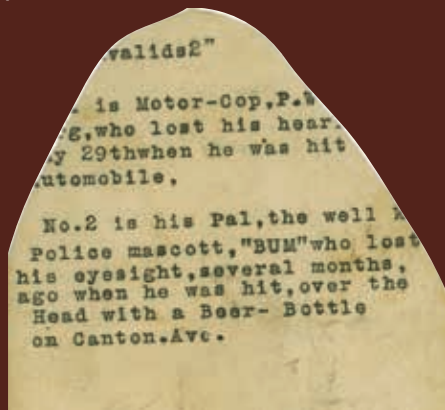 valids2"
is Motor-Cop,P.W
g,who lost his hear
y 29thwhen he was hit
utomobile,
No.2 is his Pal,the well k
Police mascott,"BUM"who lost
his eyesight,several months,
ago when he was hit,over the
Head with a Beer- Bottle
on Canton.Ave.